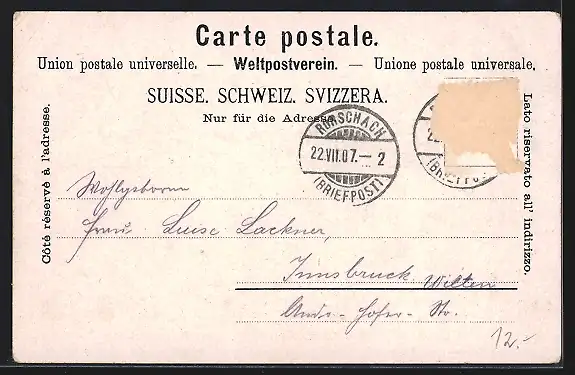 Carte postale.
Union postale universelle. — Weltpostverein. — Unione postale universale.
SUISSE. SCHWEIZ. SVIZZERA.
Nur für die Adresse.
Côté réservé à l'adresse.
Lato riservato all' indirizzo.
RORSCHACH
22.VII.07.—2
(BRIEFPOST)
22.
(BRIEFPOST)
Wohlgeborne
Frau Luise Lackner,
Innsbruck Wilten
Andr.-Hofer-Str.
12.-